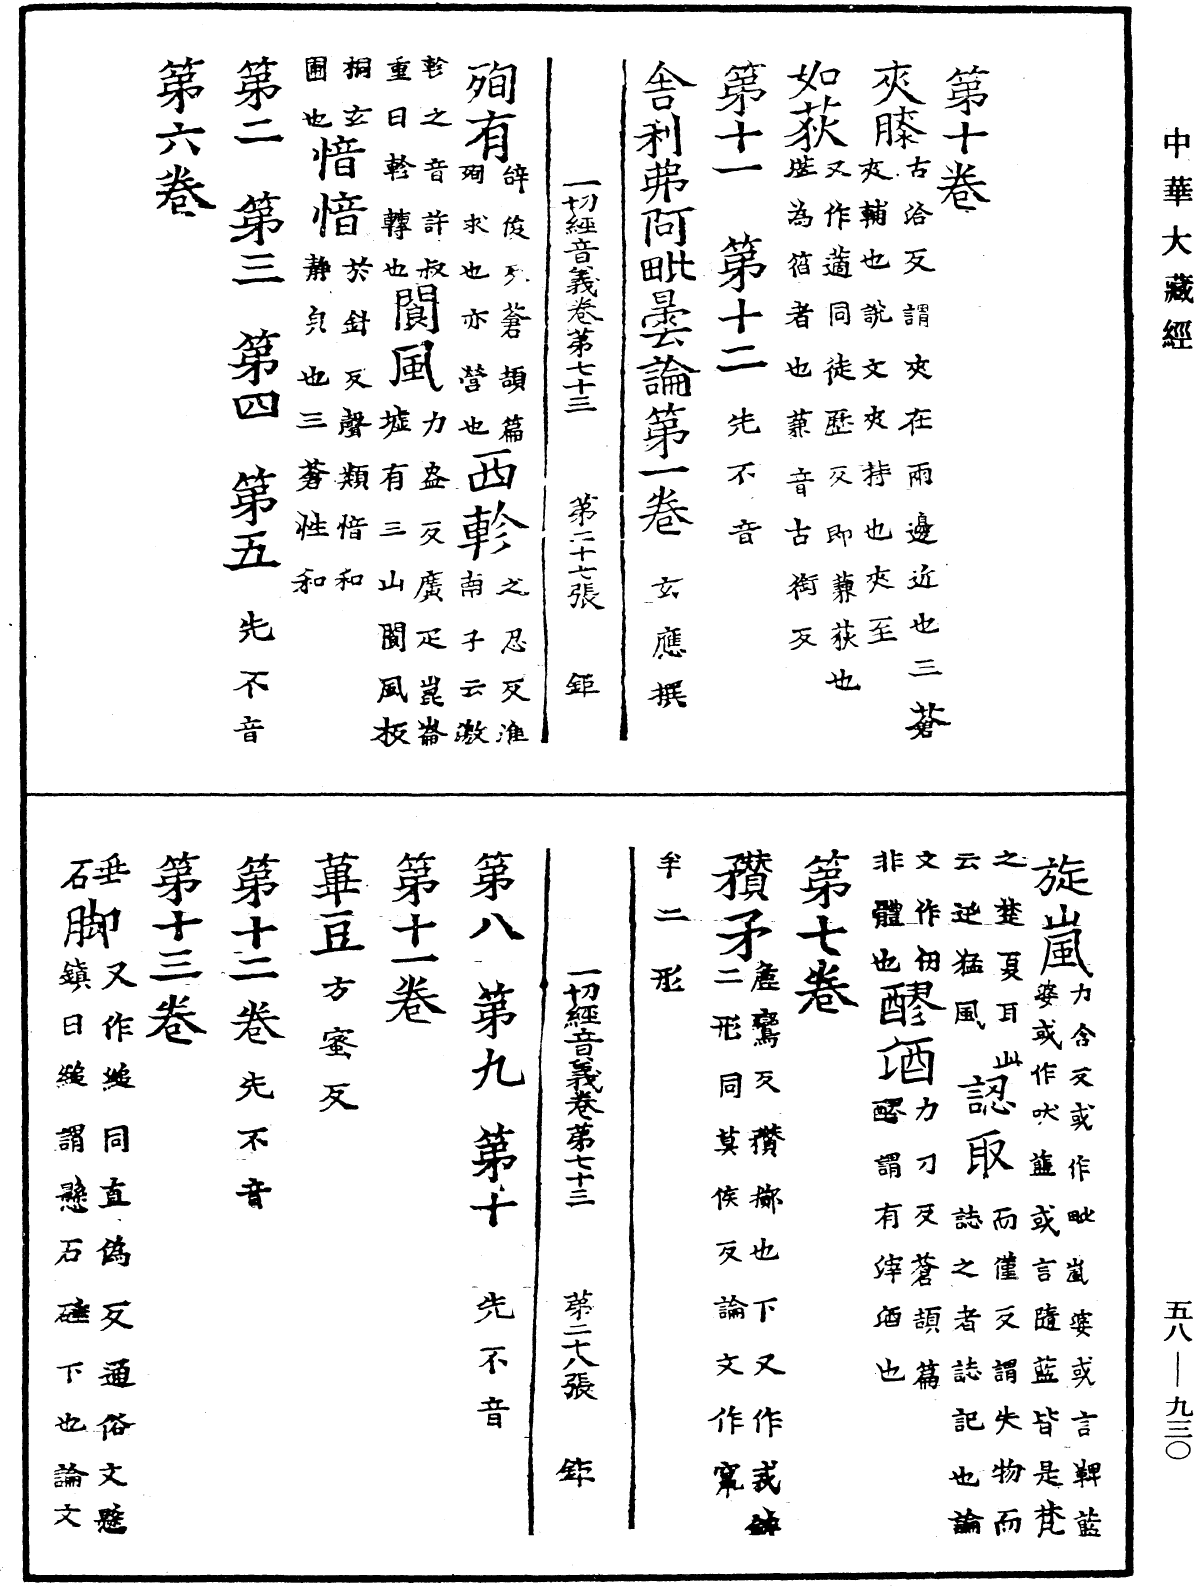 中華大藏經
第十卷
夾膝古洽反謂夾在兩邊近也三蒼
夾輔也說文夾持也夾至
如荻又作藡同徒歷反即蒹荻也
堪為箔者也蒹音古銜反
第十一 第十二 先不音
舍利弗阿毗曇論第一卷 玄應撰
一切經音義卷第七十三 第二十七張 鉅
殉有辝俊反蒼頡篇
殉求也亦營也西軫之忍反淮
南子云激
軫之音許叔
重曰軫轉也閬風力盎反廣疋崑崙
墟有三山閬風板
桐玄
圃也愔愔於針反聲類愔和
靜皃也三蒼性和
第二 第三 第四 第五 先不音
第六卷
旋嵐力含反或作毗嵐婆或言鞞藍
婆或作吠藍或言隨藍皆是梵
之楚夏耳此
云迅猛風認取而僅反謂失物而
誌之者誌記也論
文作仞
非體也醪酒力刀反蒼頡篇
醪謂有滓酒也
第七卷
穳矛麁鸞反穳擲也下又作𢦧鉾
二形同莫侯反論文作䂎
牟二形
一切經音義卷第七十三 第二十八張 鉅
第八 第九 第十 先不音
第十一卷
萆豆方蜜反
第十二卷先不音
第十三卷
垂
石脚又作縋同直偽反通俗文懸
鎮曰縋謂懸石硾下也論文
五八—九三〇